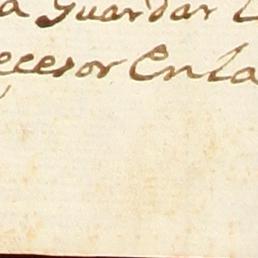 a guardar
ecesor en la